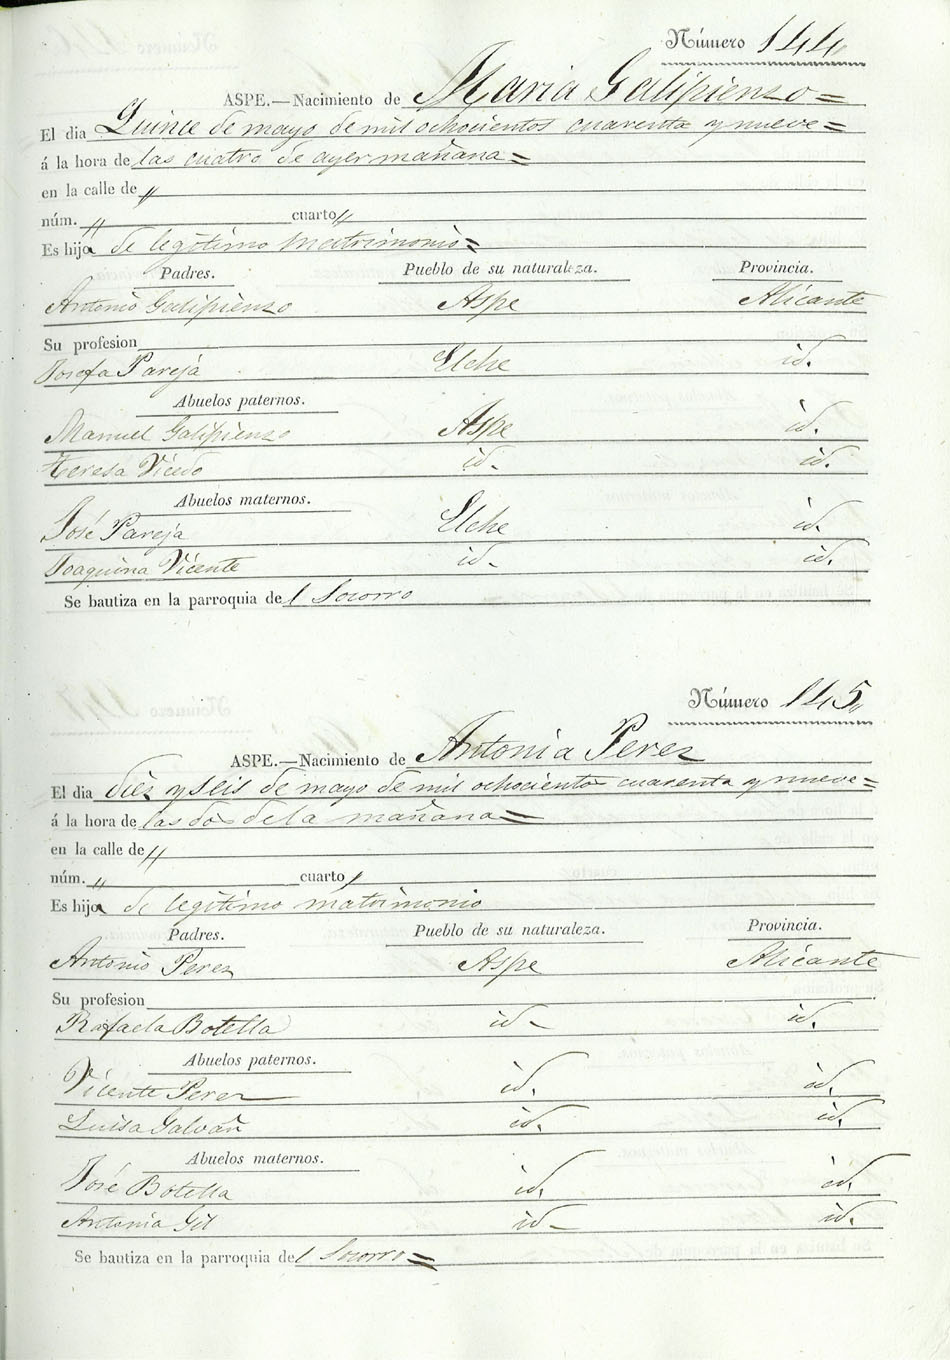 Número 144
ASPE.—Nacimiento de Maria Galipienso=
El dia Quince de mayo de mil ochocientos cuarenta y nueve=
á la hora de las cuatro de ayer mañana=
en la calle de "
núm. " cuarto "
Es hija de legítimo matrimonio=
Padres. Pueblo de su naturaleza. Provincia.
Antonio Galipienso Aspe Alicante
Su profesion
Josefa Pareja Elche id.
Abuelos paternos.
Manuel Galipienso Aspe id.
Teresa Vicedo id. id.
Abuelos maternos.
José Pareja Elche id.
Joaquina Vicente id. id.
Se bautiza en la parroquia del Socorro
Número 145
ASPE.—Nacimiento de Antonia Perez
El dia diez y seis de mayo de mil ochocientos cuarenta y nueve=
á la hora de las dos de la mañana=
en la calle de "
núm. " cuarto "
Es hija de legítimo matrimonio
Padres. Pueblo de su naturaleza. Provincia.
Antonio Perez Aspe Alicante
Su profesion
Rafaela Botella id. id.
Abuelos paternos.
Vicente Perez id. id.
Luisa Galvañ id. id.
Abuelos maternos.
José Botella id. id.
Antonia Gil id. id.
Se bautiza en la parroquia del Socorro=